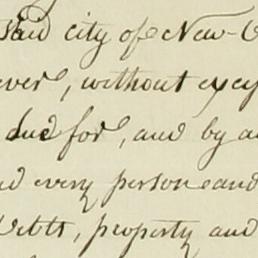 said city of New-O
ever, without excep
due for, and by a
and every person and
Debts, property and